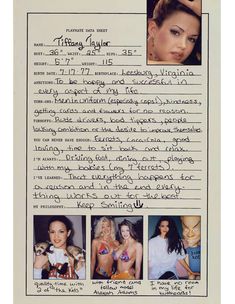 PLAYMATE DATA SHEET
NAME: Tiffany Taylor
BUST: 36" WAIST: 25" HIPS: 35"
HEIGHT: 5'7" WEIGHT: 115
BIRTH DATE: 7-17-77 BIRTHPLACE: Leesburg, Virginia
AMBITIONS: To be happy and successful in
every aspect of my life
TURN-ONS: Men in uniform (especially cops), kindness,
getting cards and flowers for no reason.
TURNOFFS: Rude drivers, bad tippers, people
lacking ambition or the desire to improve themselves
YOU CAN NEVER HAVE ENOUGH: Ferrets, Coca-Cola, good
loving, time to sit back and relax.
I'M ALWAYS: Driving fast, dining out, playing
with my babies (my 7 ferrets).
I'VE LEARNED: That everything happens for
a reason and in the end every-
thing works out for the best.
MY PHILOSOPHY: Keep Smiling
quality time with
2 of "the kids"
with friend and
fellow model
Alleyah Adams
I have no room
in my life for